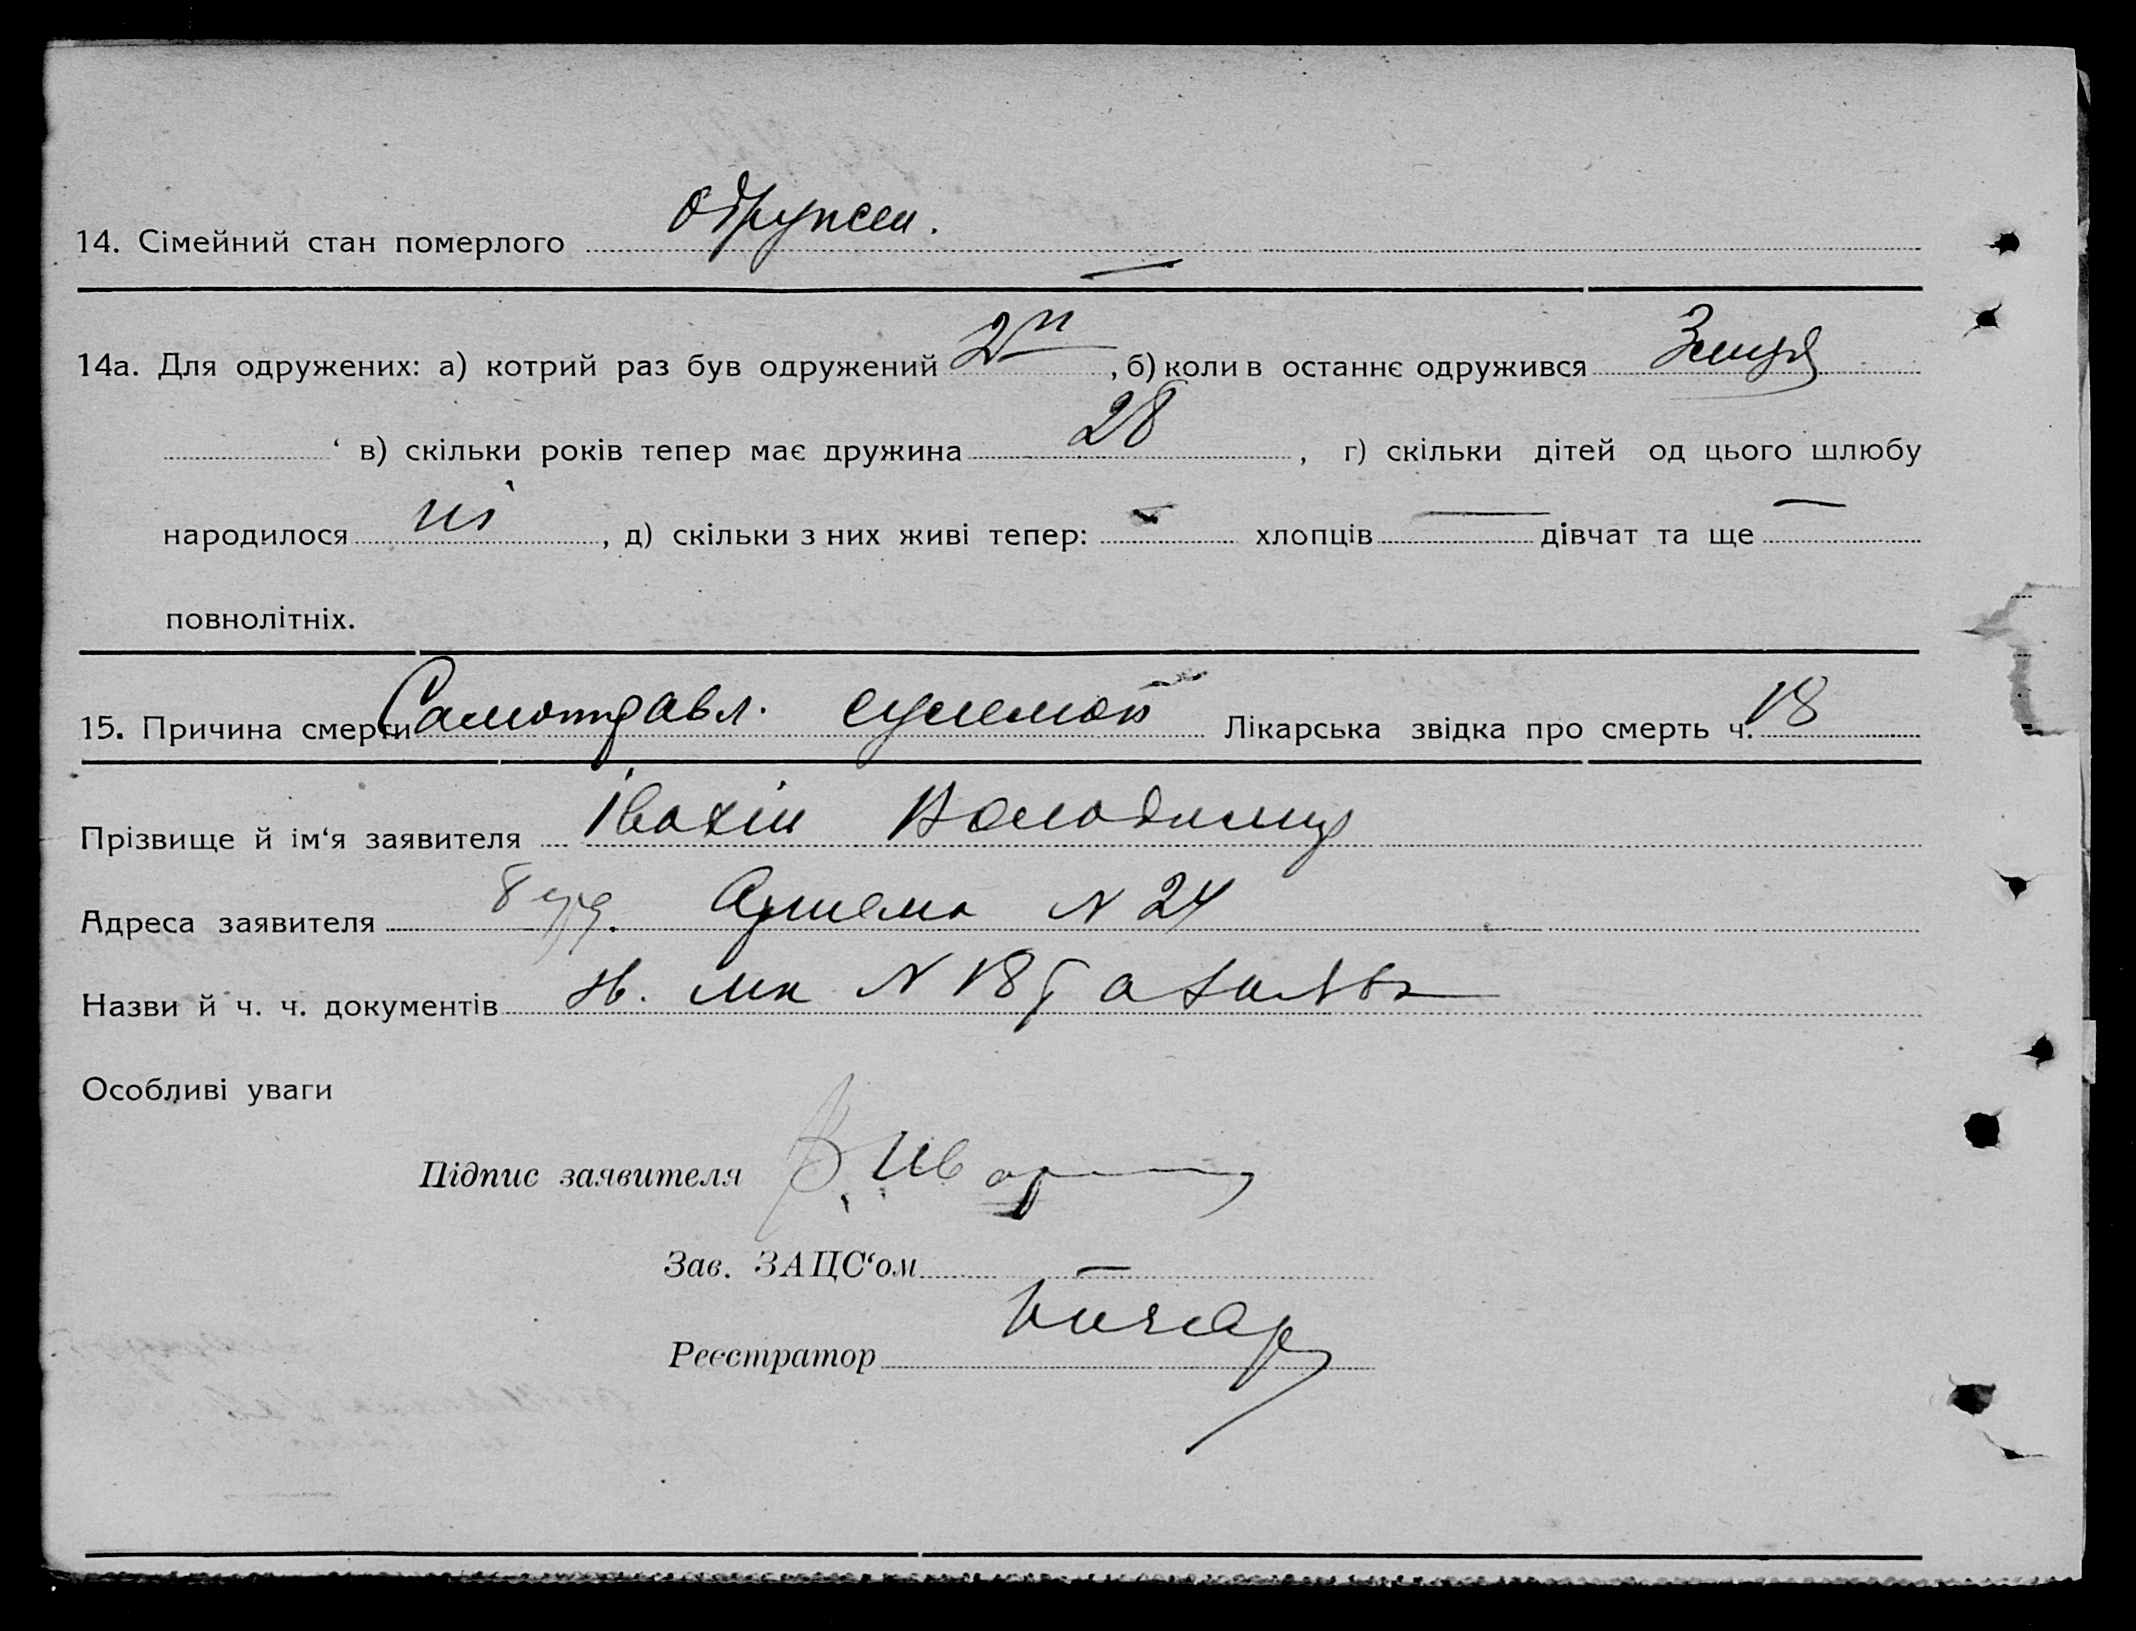 14. Сімейний стан померлого одружен.
14а. Для одружених: а) котрий раз був одружений 2й, б) коли в останнє одружився
‘ в) скільки років тепер має дружина 28, г) скільки дітей од цього шлюбу
народилося ні, д) скільки з них живі тепер: — хлопців — дівчат та ще —
повнолітніх.
15. Причина смерти Самоотравл. сулемой Лікарська звідка про смерть ч. 18
Прізвище й ім‘я заявителя Івахін Володимир
Адреса заявителя Артема N 24
Назви й ч. ч. документів N 18
Особливі уваги
Підпис заявителя
Зав. ЗАЦС‘ом —
Реєстратор